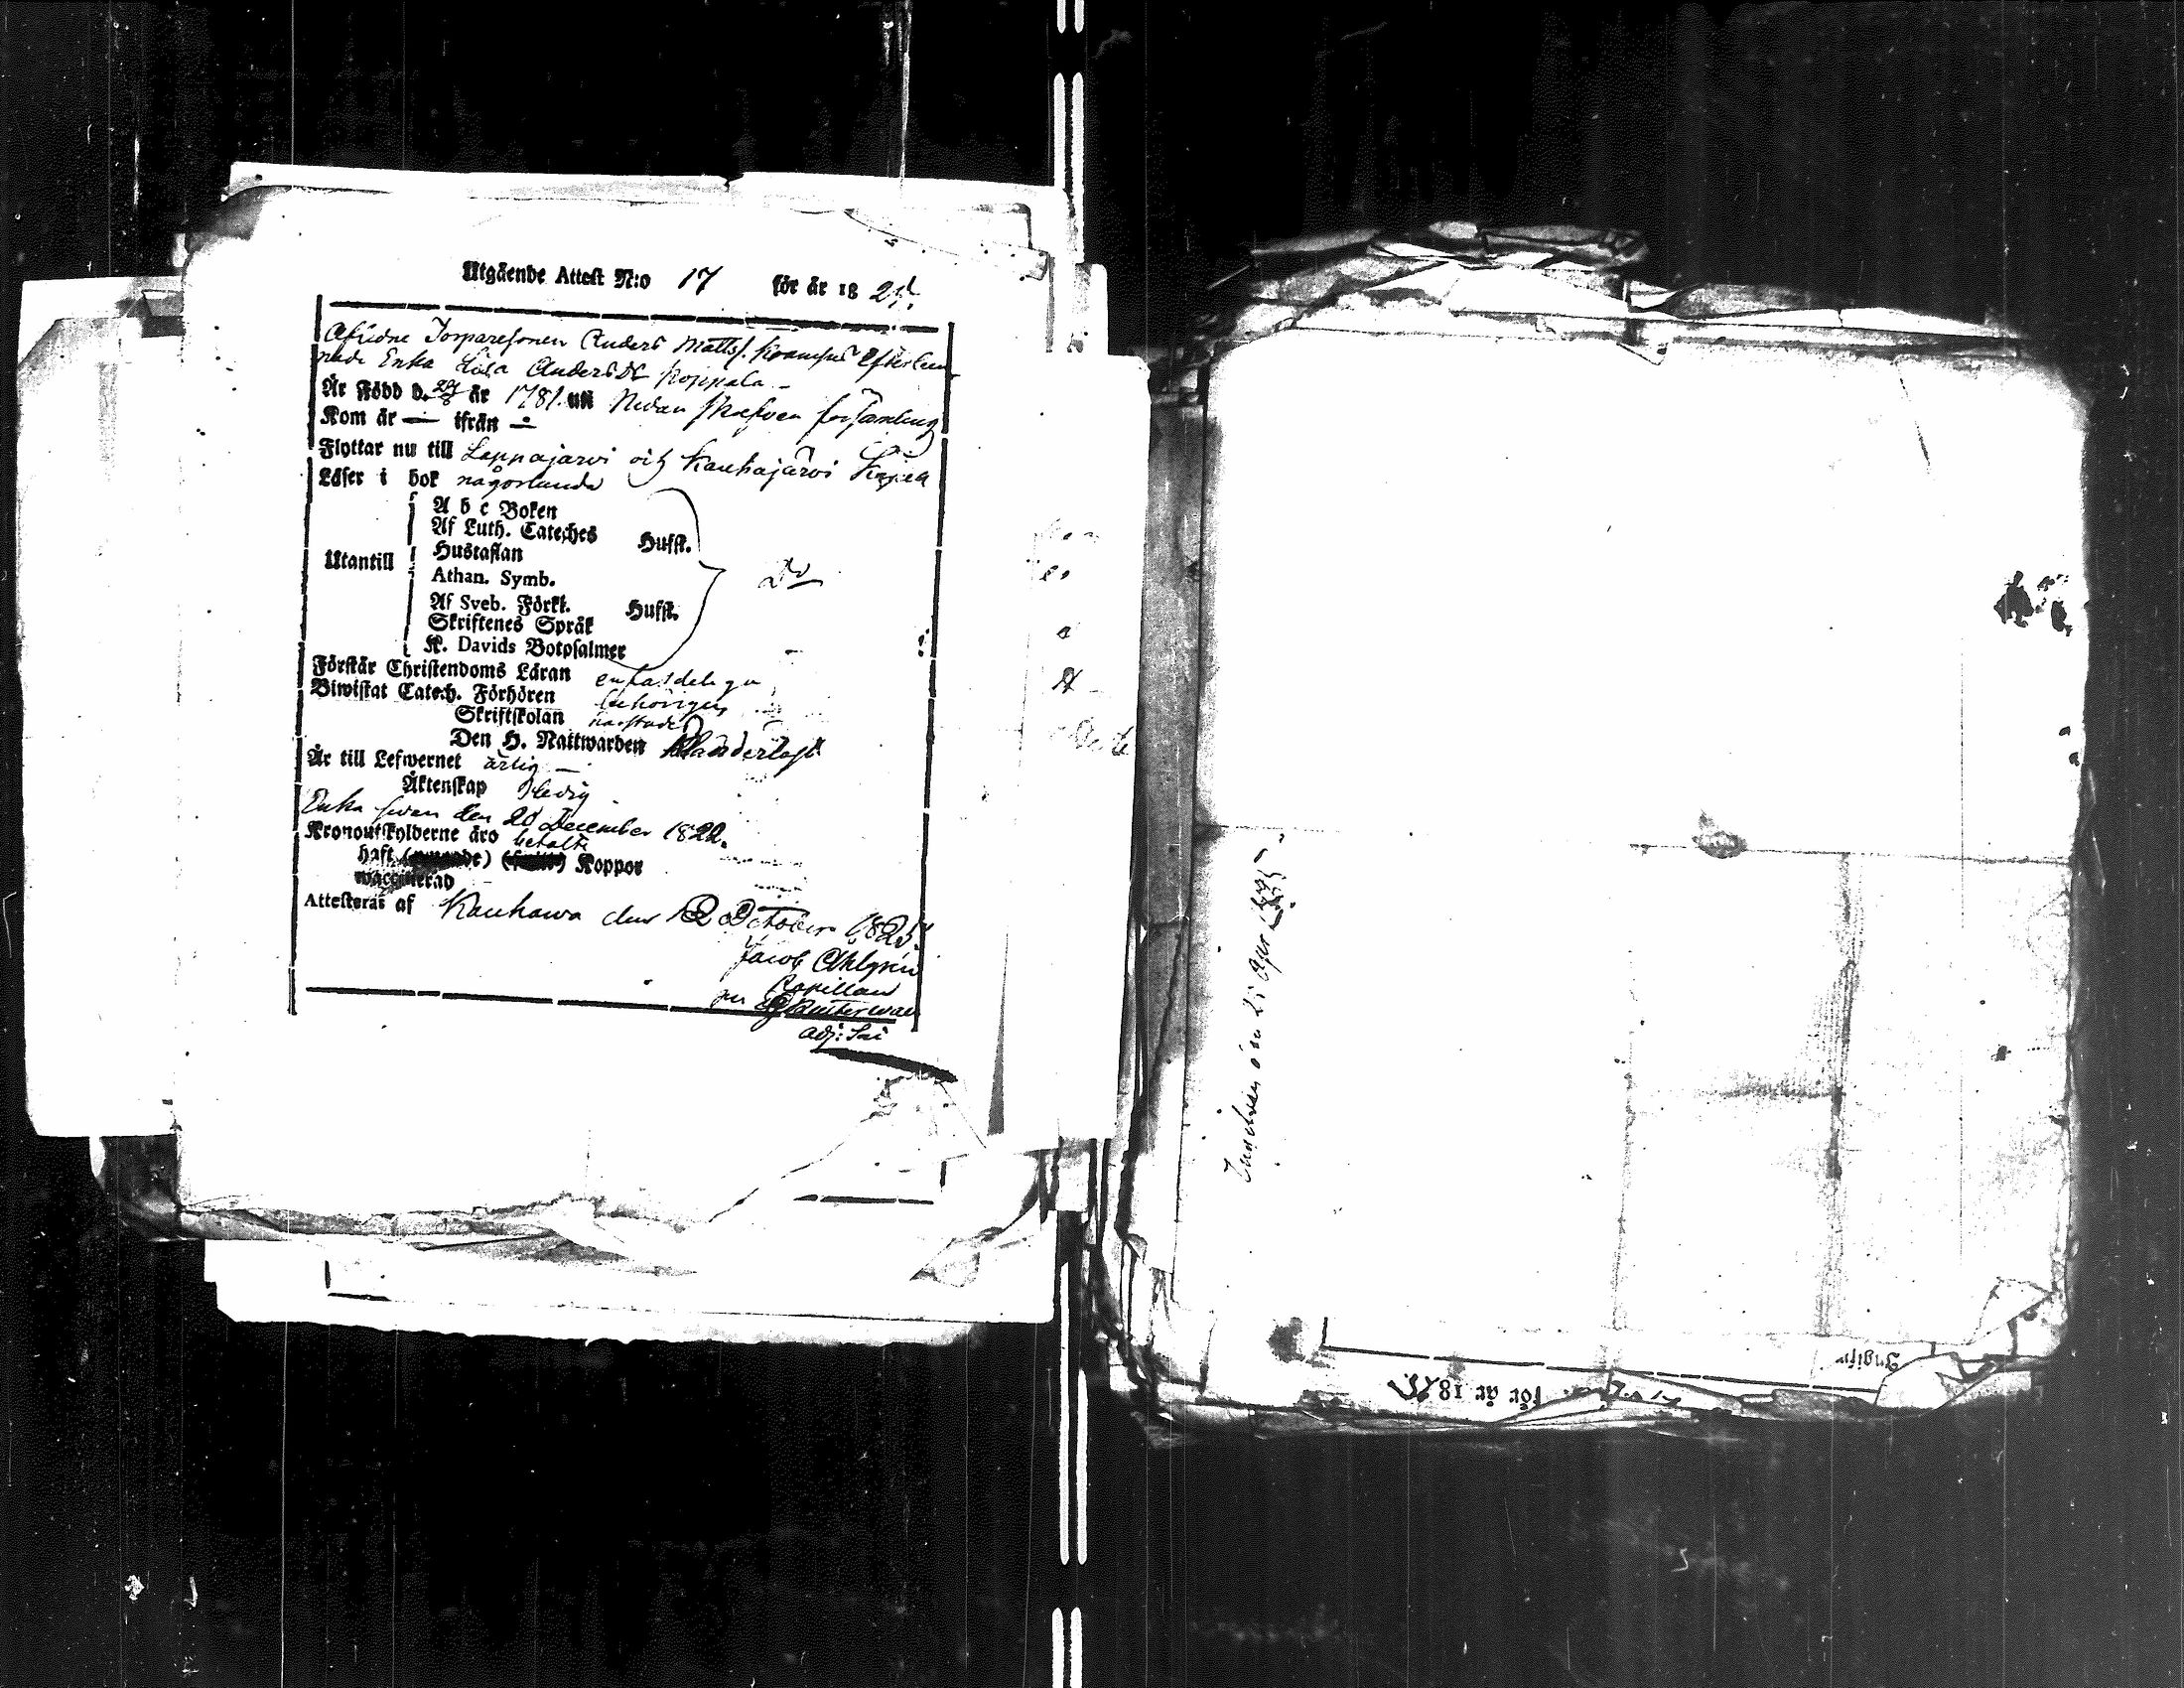 Utgående Attest N:o 17 för år 1825.
Afledne Torparesonen Anders Mattss. Efterlem-
nade Enka Lisa Andersdr Koppala. –
Är Född d. år 1781. uti Nedan skrefven församling
Kom år — ifrån —
Flyttar nu till Lappajärwi och Kauhajärwi
Läser i bok någorlunda
A b c Boken
Af Luth. Cateches Hufst.
Hustaflan
Utantill
Athan. Symb.
Do
Af Sveb. Förkl. Hufst.
Skriftenes Språk
K. Davids Botpsalmer
Förstår Christendoms Läran enfaldeligen
Biwistat Catech. Förhören behörigen
Skriftskolan
Den H. Nattwarden
Är till Lefwernet ärlig –
Äktenskap ledig
Enka sedan den 20 December 1822.
Kronoutskylderne äro betalte
haft Koppor
waccinerad
Attesteras af Kauhawa den 12 October 1825.
Jacob Ahlgren
Kapellan
adj:
den 25 Apr
för år 18